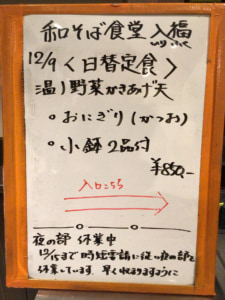 和そば食堂 入福
いり ふく
12/9 〈日替定食〉
温)野菜かきあげ天
◦ おにぎり(かつお)
◦ 小鉢2品付
¥850.-
入口こちら
夜の部 休業中
12/15まで時短要請に従い夜の部を
休業しています。早く収まりますように